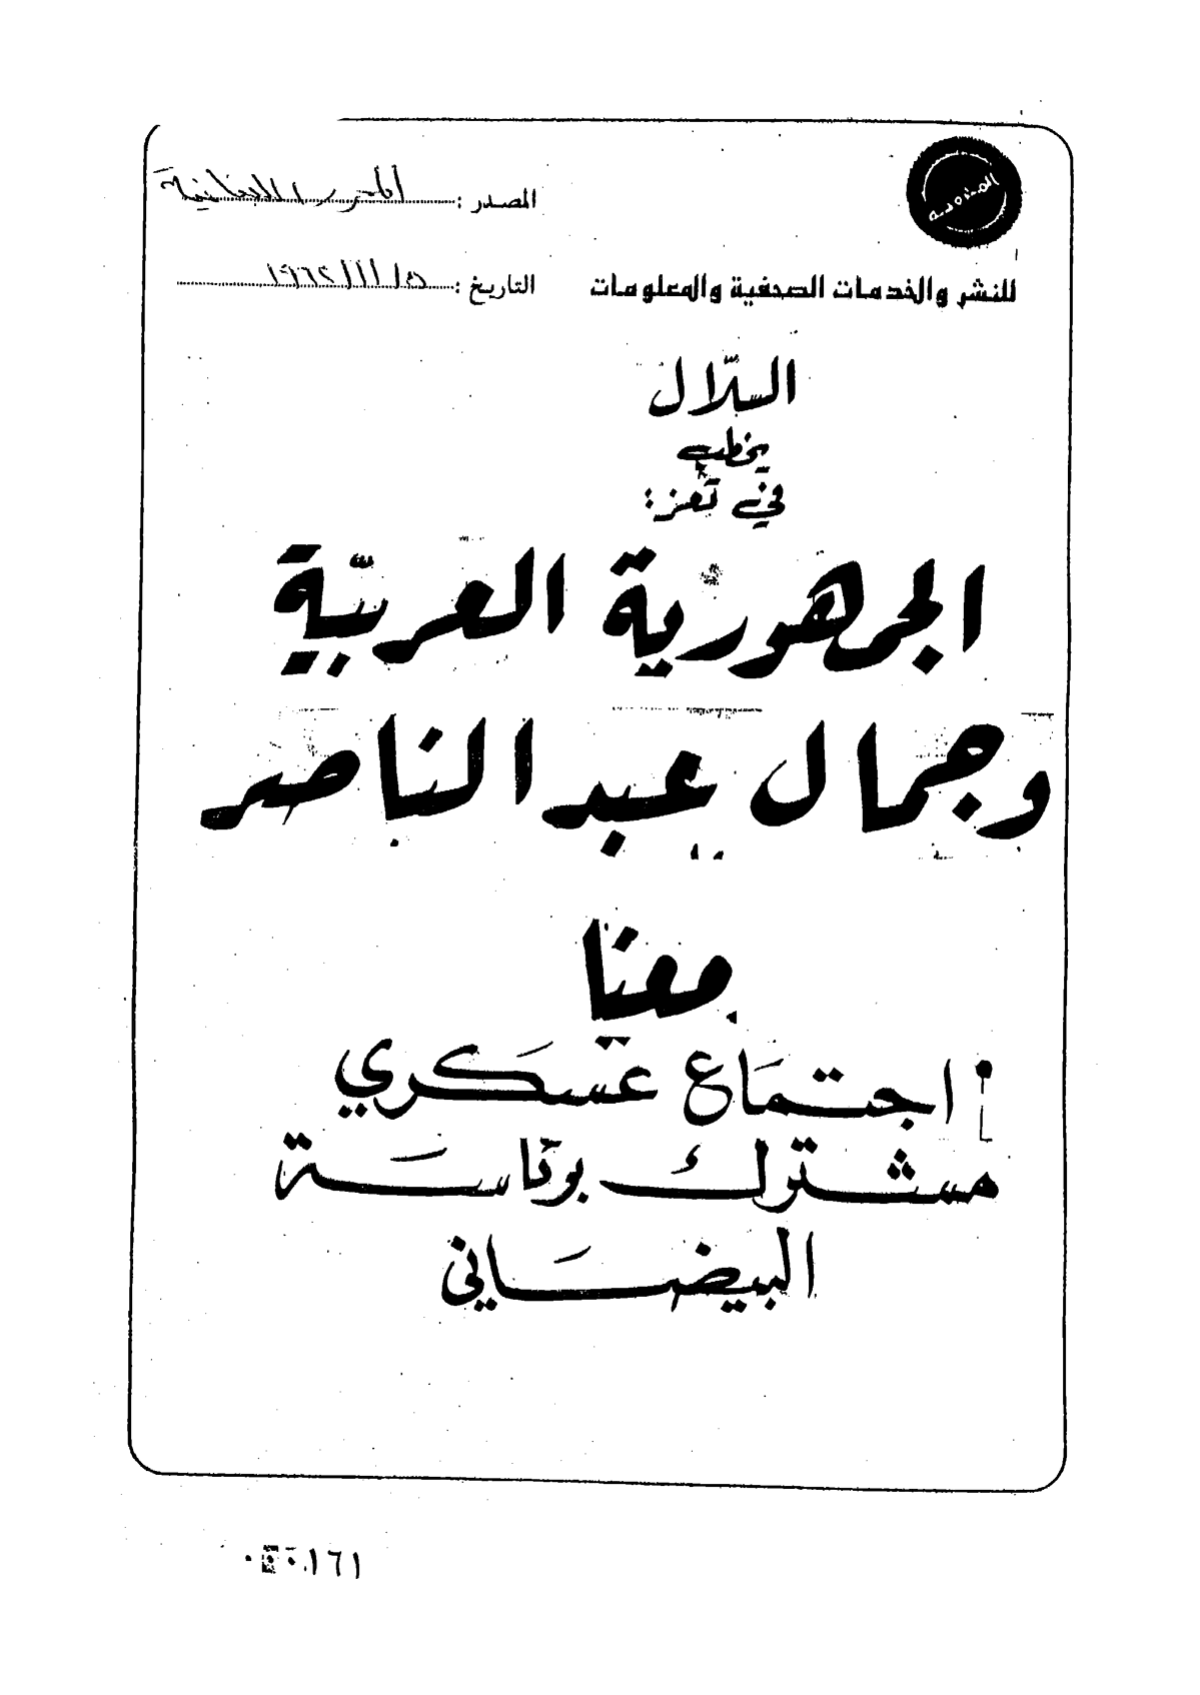 المصدر : المحرر اللبنانية
للنشر والخدمات الصحفية والمعلومات
التاريخ : ١٩٦٢/١١/٥
السلّال
يخطب
في تعز :
الجمهورية العربيّة
وجمال عبد الناصر
معنا
اجتماع عسكري
مشترك برئاسة
البيضاني
١٦١